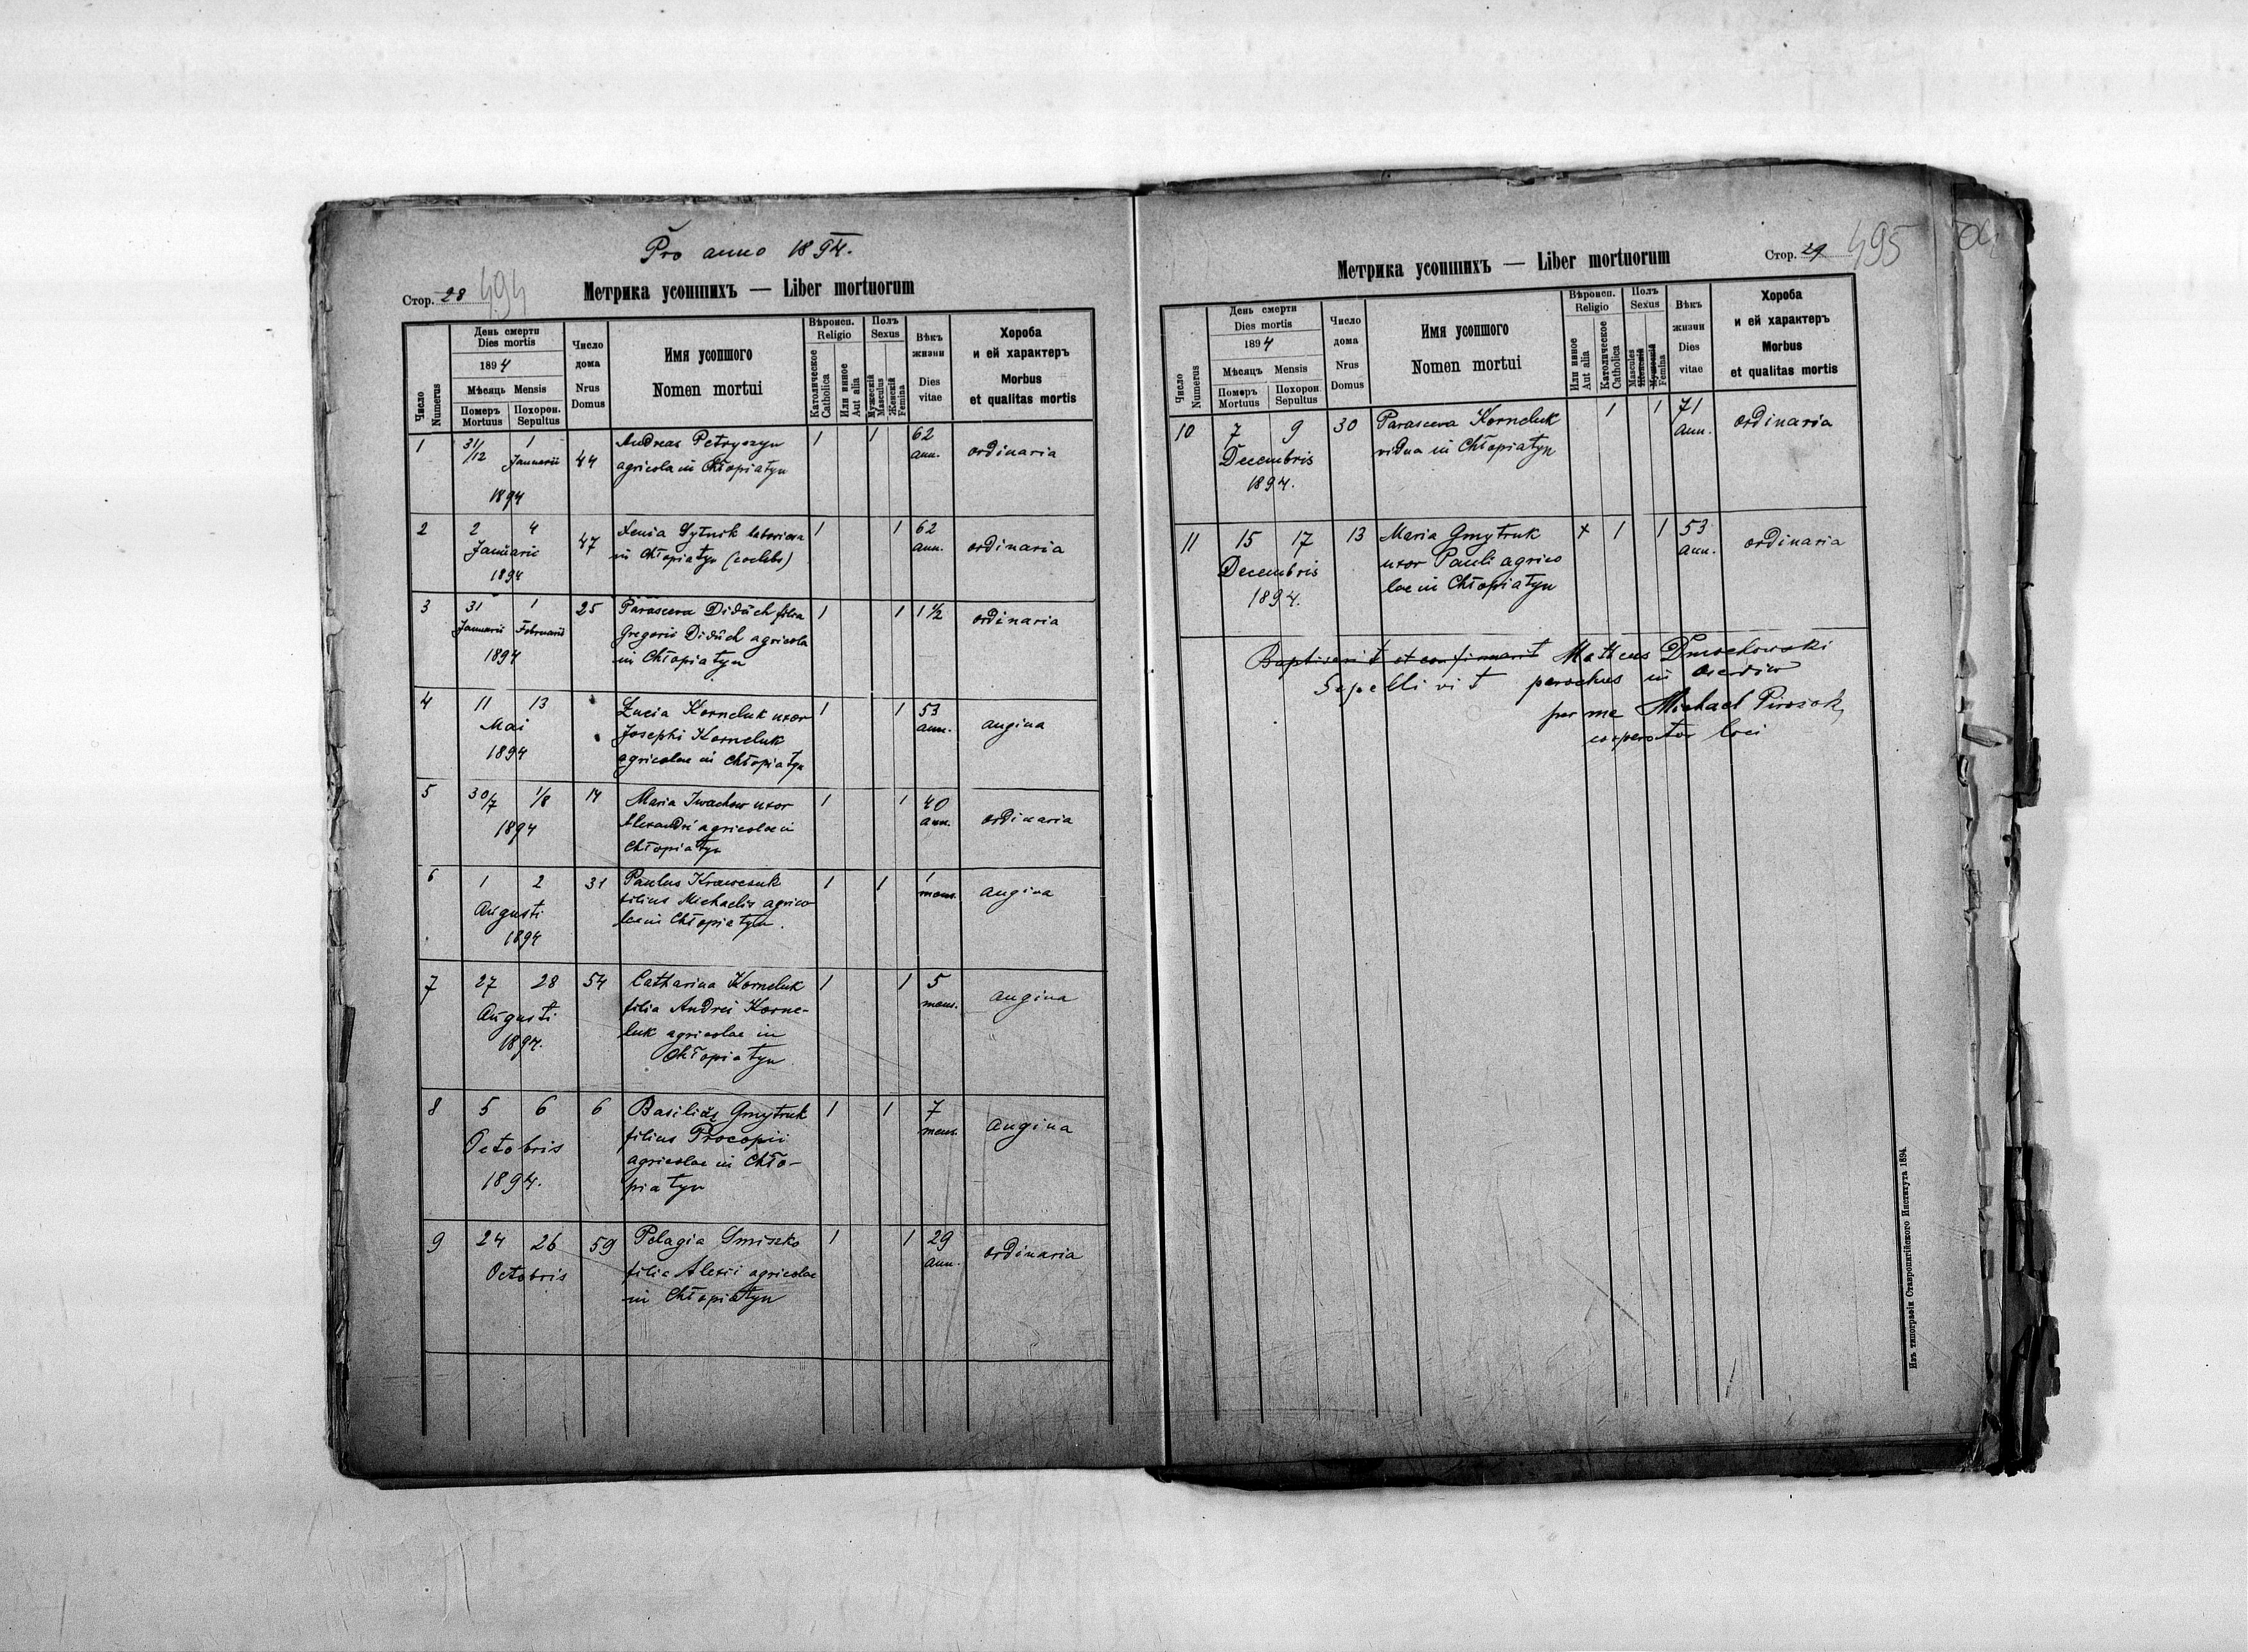 Pro anno 1894.
Стор. 28 494
Метрика усопшихъ — Liber mortuorum
Число Numerus
День смерти
Dies mortis
1894
Мѣсяць Mensis
Померъ Mortuus
Похорон. Sepultus
Число дома
Nrus Domus
Имя усопшого
Nomen mortui
Вѣроисп. Religio
Католическое Catholica
Или инное Aut alia
Полъ Sexus
Мужескій Masculus
Женскій Femina
Вѣкъ жизни
Dies vitae
Хороба
и ей характеръ
Morbus
et qualitas mortis
1 31/12 1 Januarii 1894 44
Andreas Petryszyn
agricola in Chłopiatyn
1 1 62 ann. ordinaria
2 2 4 Januarii 1894 47
Xenia Sytnik
in Chłopiatyn (coelebs)
1 1 62 ann. ordinaria
3 31 Januarii 1 Februarii 1894 25
Parasceva Diduch filia
Gregorii Diduch agricola
in Chłopiatyn
1 1 1 1/2 ordinaria
4 11 13 Mai 1894
Łucia Korneluk uxor
Josephi Korneluk
agricolae in Chłopiatyn
1 1 53 ann. angina
5 30/7 1/8 1894 14
Maria Iwachow uxor
Alexandri agricolae in
Chłopiatyn
1 1 40 ann. ordinaria
6 1 2 Augusti 1894 31
Paulus Krawczuk
filius Michaelis agrico
lae in Chłopiatyn.
1 1 1 mens. angina
7 27 28 Augusti 1894. 54
Catharina Korneluk
filia Andrei Korne-
luk agricolae in
Chłopiatyn
1 1 5 mens. angina
8 5 6 Octobris 1894. 6
Basilius Gmytruk
filius Procopii
agricolae in Chło-
piatyn
1 1 7 mens. angina
9 24 26 Octobris 59
Pelagia Smiszko
filia Alexii agricolae
in Chłopiatyn
1 1 29 ann. ordinaria
Метрика усопшихъ — Liber mortuorum
Стор. 29 495
Число Numerus
День смерти
Dies mortis
1894
Мѣсяць Mensis
Померъ Mortuus
Похорон. Sepultus
Число дома
Nrus Domus
Имя усопшого
Nomen mortui
Вѣроисп. Religio
Или инное Aut alia
Католическое Catholica
Полъ Sexus
Masculus Женскій
Мужескій Femina
Вѣкъ жизни
Dies vitae
Хороба
и ей характеръ
Morbus
et qualitas mortis
10 7 9 Decembris 1894. 30
Parasceva Korneluk
vidua in Chłopiatyn
1 1 71 ann. ordinaria
11 15 17 Decembris 1894. 13
Maria Gmytruk
uxor Pauli agrico
lae in Chłopiatyn
+ 1 1 53 ann. ordinaria
Baptisavit et confirmavit Matheus Dmochowski
Sepelivit parochus in
per me Michael Pirozok,
cooperator loci
Изъ типографіи Ставропигійского Института 1894.